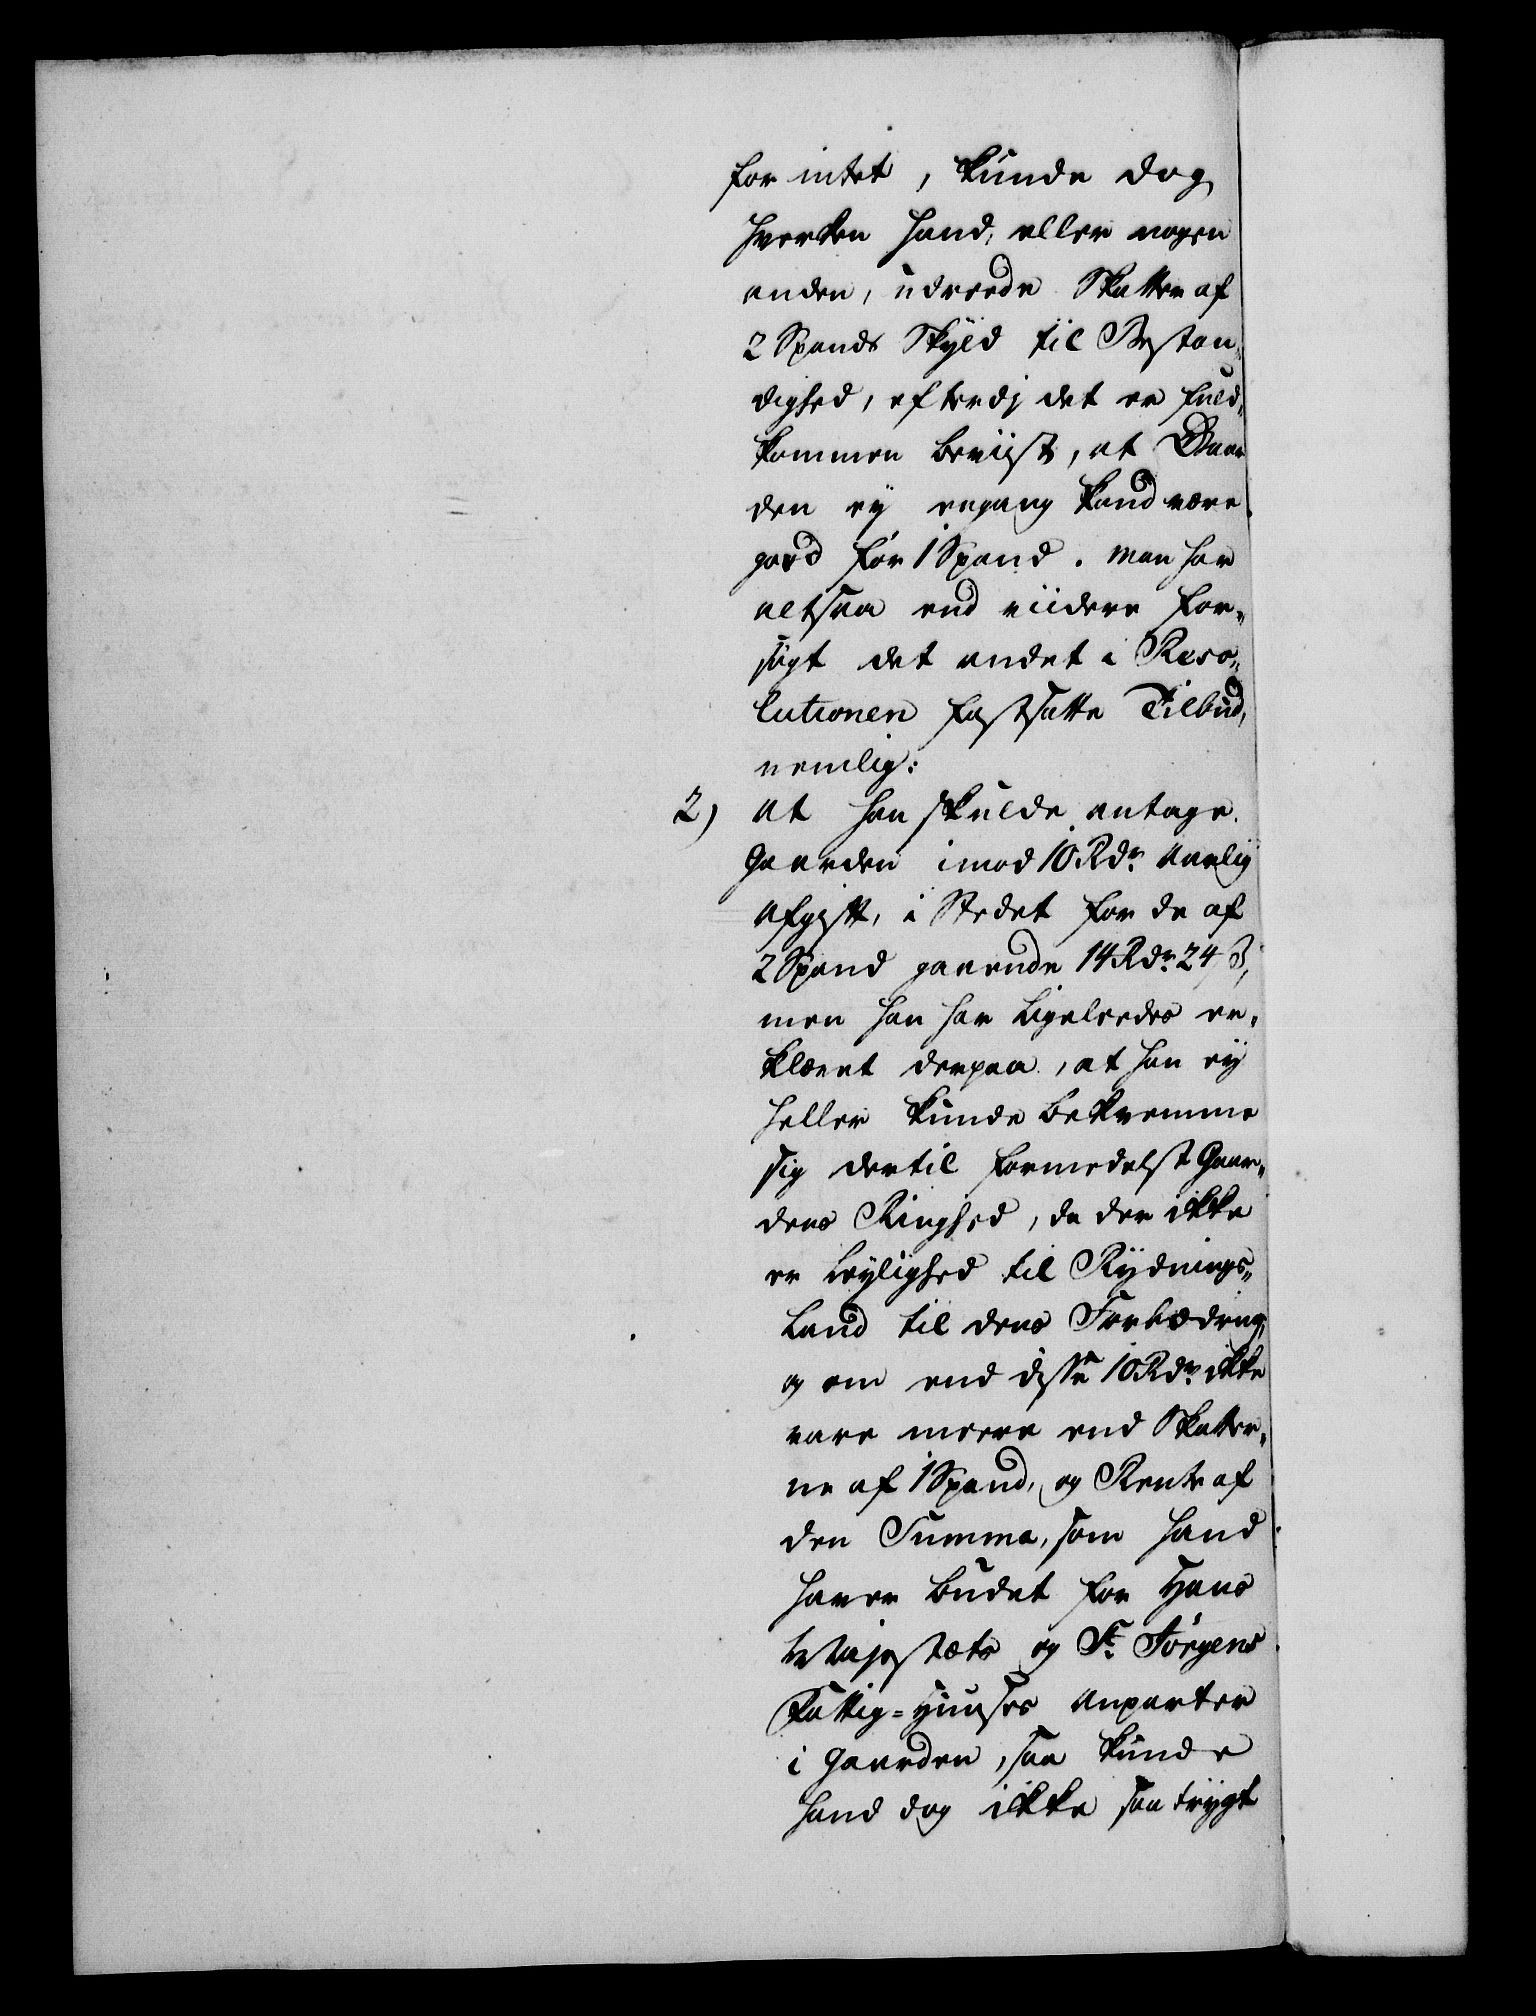 for intet, kunde dog
hverken hand, eller nogen
anden, udreede Skatter af
2 Spands Skyld til Bestan„
dighed, efterdj det er fuld„
kommen beviist, at Gaar
den ey engang kand være
goed for 1 Spand. Man har
altsaa end viidere for„
søgt det andet i Reso„
lutionen fastsatte Tilbud,
nemlig:
2) at han skulde antage
Gaarden imod 10 Rdr. aarlig
Afgift, i Stedet for de af
2 Spand gaaende 14 Rdr. 24 ß,
men han har ligeleedes er„
klæret derpaa, at han ey
heller kunde beqvemme
sig dertil formedelst Gaar„
dens Ringhed, da der ikke
er Leylighed til Rydnings„
Land til dens Forbædring,
og om end disse 10 Rdr. ikke
vare meere end Skatter„
ne af 1 Spand, og Rente af
den Summa, som hand
haver budet for Hans
Majestæts og St. Jørgens
Fattig-Huuses Anparter
i Gaarden, saa kunde
hand dog ikke saa trygt